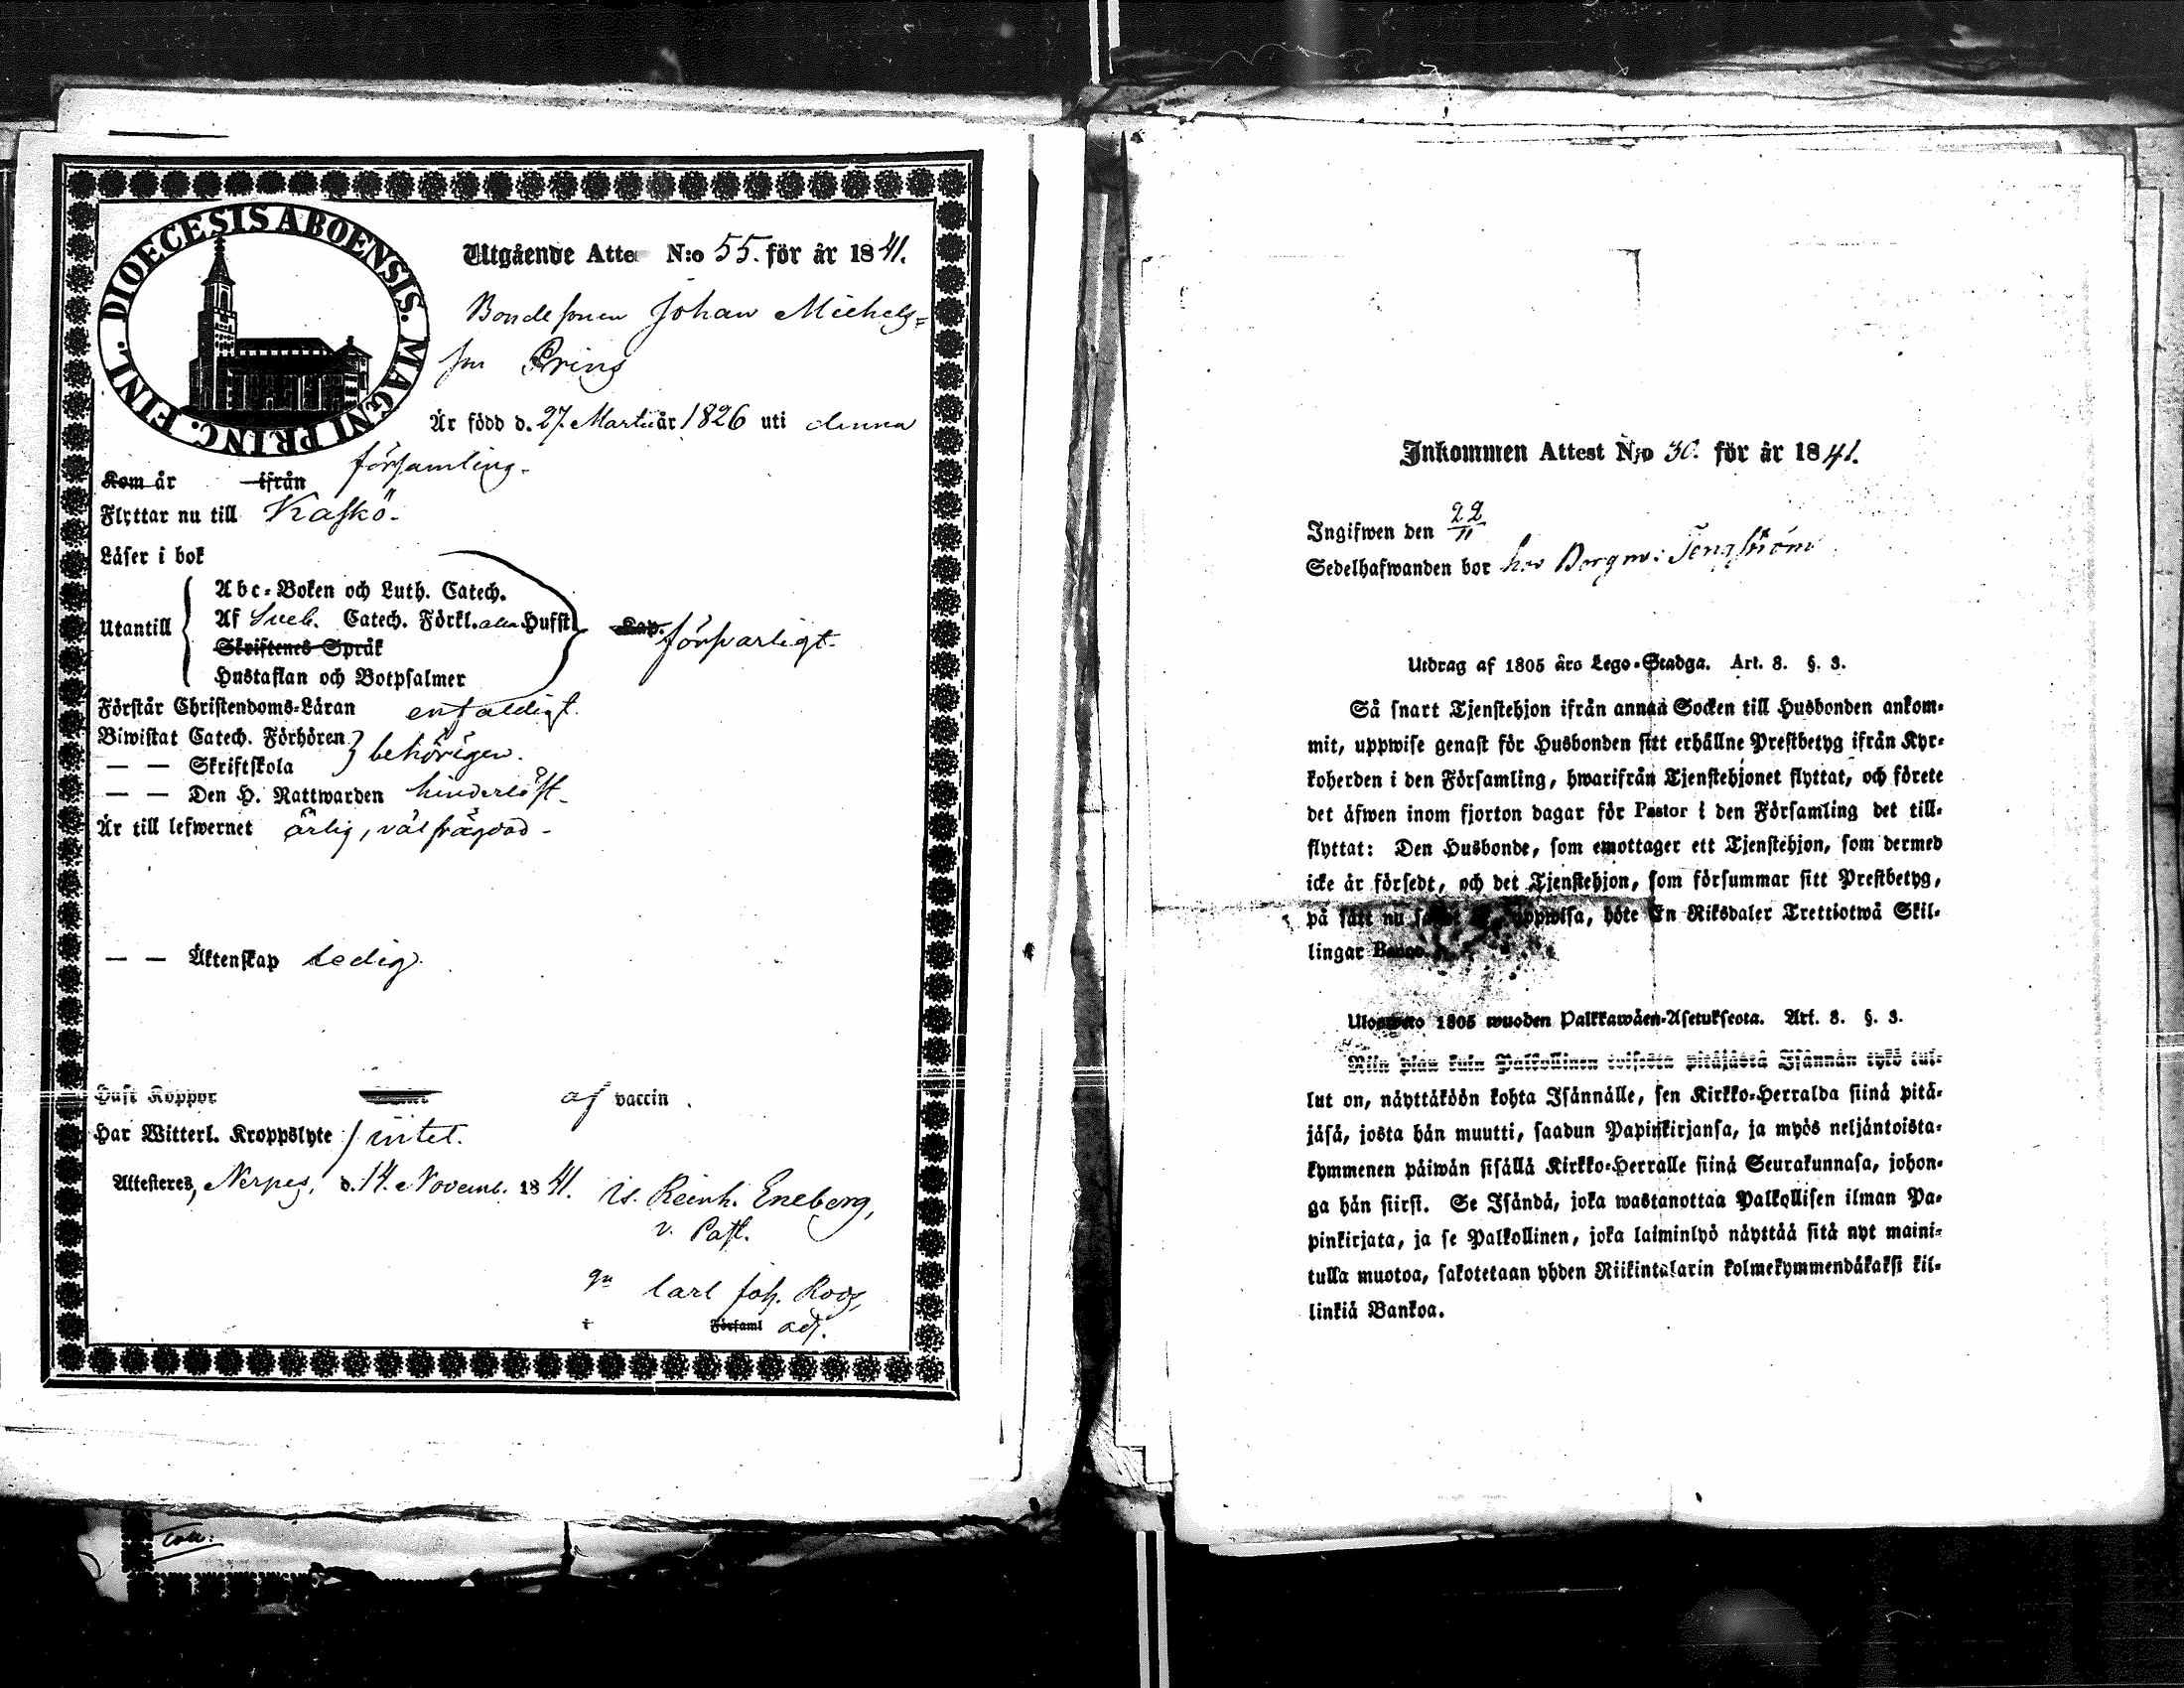 DIOECESIS ABOENSIS. MAGNI PRINC. FINL.
Utgående Atte N:o 55. för år 1841.
Bondesonen Johan Michels=
son Prins
Är född d. 27. Martii år 1826 uti denna
församling.
Kom år ifrån
Flyttar nu till Kaskö.
Läser i bok
Utantill
Abc-Boken och Luth. Catech.
Af Sveb. Catech. Förkl. Hufst. Cap. försvarligt.
Skriftenes Språk
Hustaflan och Botpsalmer
Förstår Christendoms-Läran enfaldigt.
Biwistat Catech. Förhören } behörigen.
— — Skriftskola
— — Den H. Nattwarden hinderlöst.
Är till lefwernet ärlig, väl frägdad.
— — Äktenskap ledig.
Haft Koppor af vaccin.
Har Witterl. Kroppslyte intet.
Attesteres, Nerpes, d. 14. Novemb. 1841. Is. Reinh. Eneberg,
v. Past.
gm Carl Joh. Roos,
i Församl adj.
Coll:
Inkommen Attest N:o 30. för år 1841.
Ingifwen den 22/11
Sedelhafwanden bor hos Borgm: Tengström
Utdrag af 1805 års Lego-Stadga. Art. 8. §. 3.
Så snart Tjenstehjon ifrån annan Socken till Husbonden ankom-
mit, uppwise genast för Husbonden sitt erhållne Prestbetyg ifrån Kyr-
koherden i den Församling, hwarifrån Tjenstehjonet flyttat, och förete
det äfwen inom fjorton dagar för Pastor i den Församling det till-
flyttat: Den Husbonde, som emottager ett Tjenstehjon, som dermed
icke är försedt, och det Tjenstehjon, som försummar sitt Prestbetyg,
på sätt nu uppwisa, böte En Riksdaler Trettiotwå Skil-
lingar Banco.
Ulosweto 1805 wuoden Palkkawäen-Asetuksesta. Art. 8. §. 3.
Niin pian kuin Palkollinen toisesta pitäjästä Isännän tykö tul-
lut on, näyttäköön kohta Isännälle, sen Kirkko-Herralda siinä pitä-
jäsä, josta hän muutti, saadun Papinkirjansa, ja myös neljäntoista-
kymmenen päiwän sisällä Kirkko-Herralle siinä Seurakunnasa, johon-
ga hän siirsi. Se Isändä, joka wastanottaa Palkollisen ilman Pa-
pinkirjata, ja se Palkollinen, joka laiminlyö näyttää sitä nyt maini-
tulla muotoa, sakotetaan yhden Riikintalarin kolmekymmendäkaksi kil-
linkiä Bankoa.